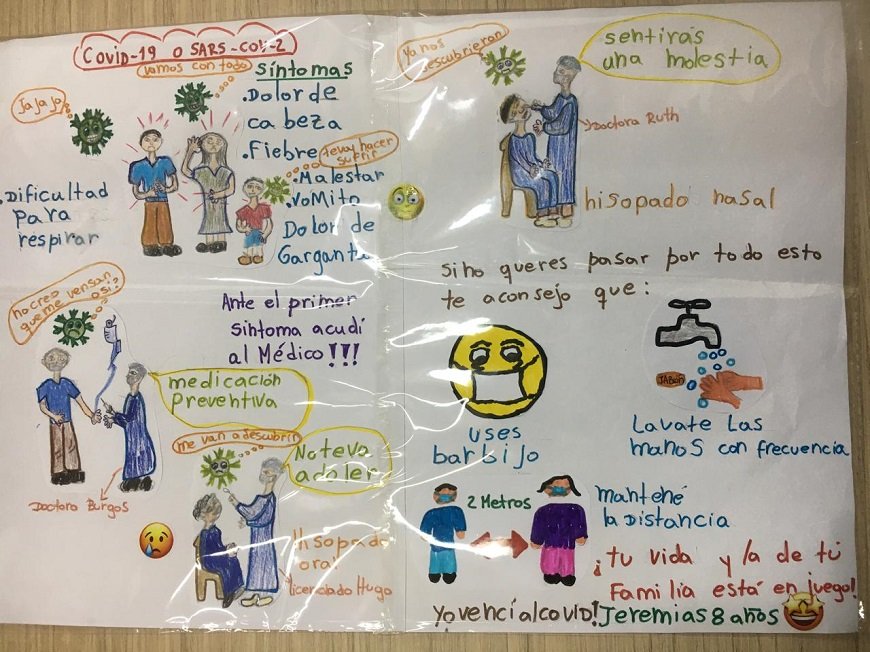 Covid-19 o SARS-COV-2
vamos con todo
Jajajo
síntomas
.Dolor de
cabeza
.Fiebre
te voy hacer
sufrir
.Malestar
.vomito
Dolor de
Garganta
.Dificultad
para
respirar
no creo
que me vensan
asi?
Ante el primer
síntoma acudí
al Médico!!!
medicación
preventiva
Doctora Burgos
me van a descubrir
No te va
a doler
Hisopado
oral
licenciado Hugo
ya nos
descubrieron
sentirás
una molestia
Doctora Ruth
hisopado nasal
si no queres pasar por todo esto
te aconsejo que:
uses
barbijo
JABón
Lavate las
manos con frecuencia
2 Metros
mantené
la Distancia
¡tu vida y la de tú
Familia está en juego!
Yo vencí al covid! Jeremias 8 años